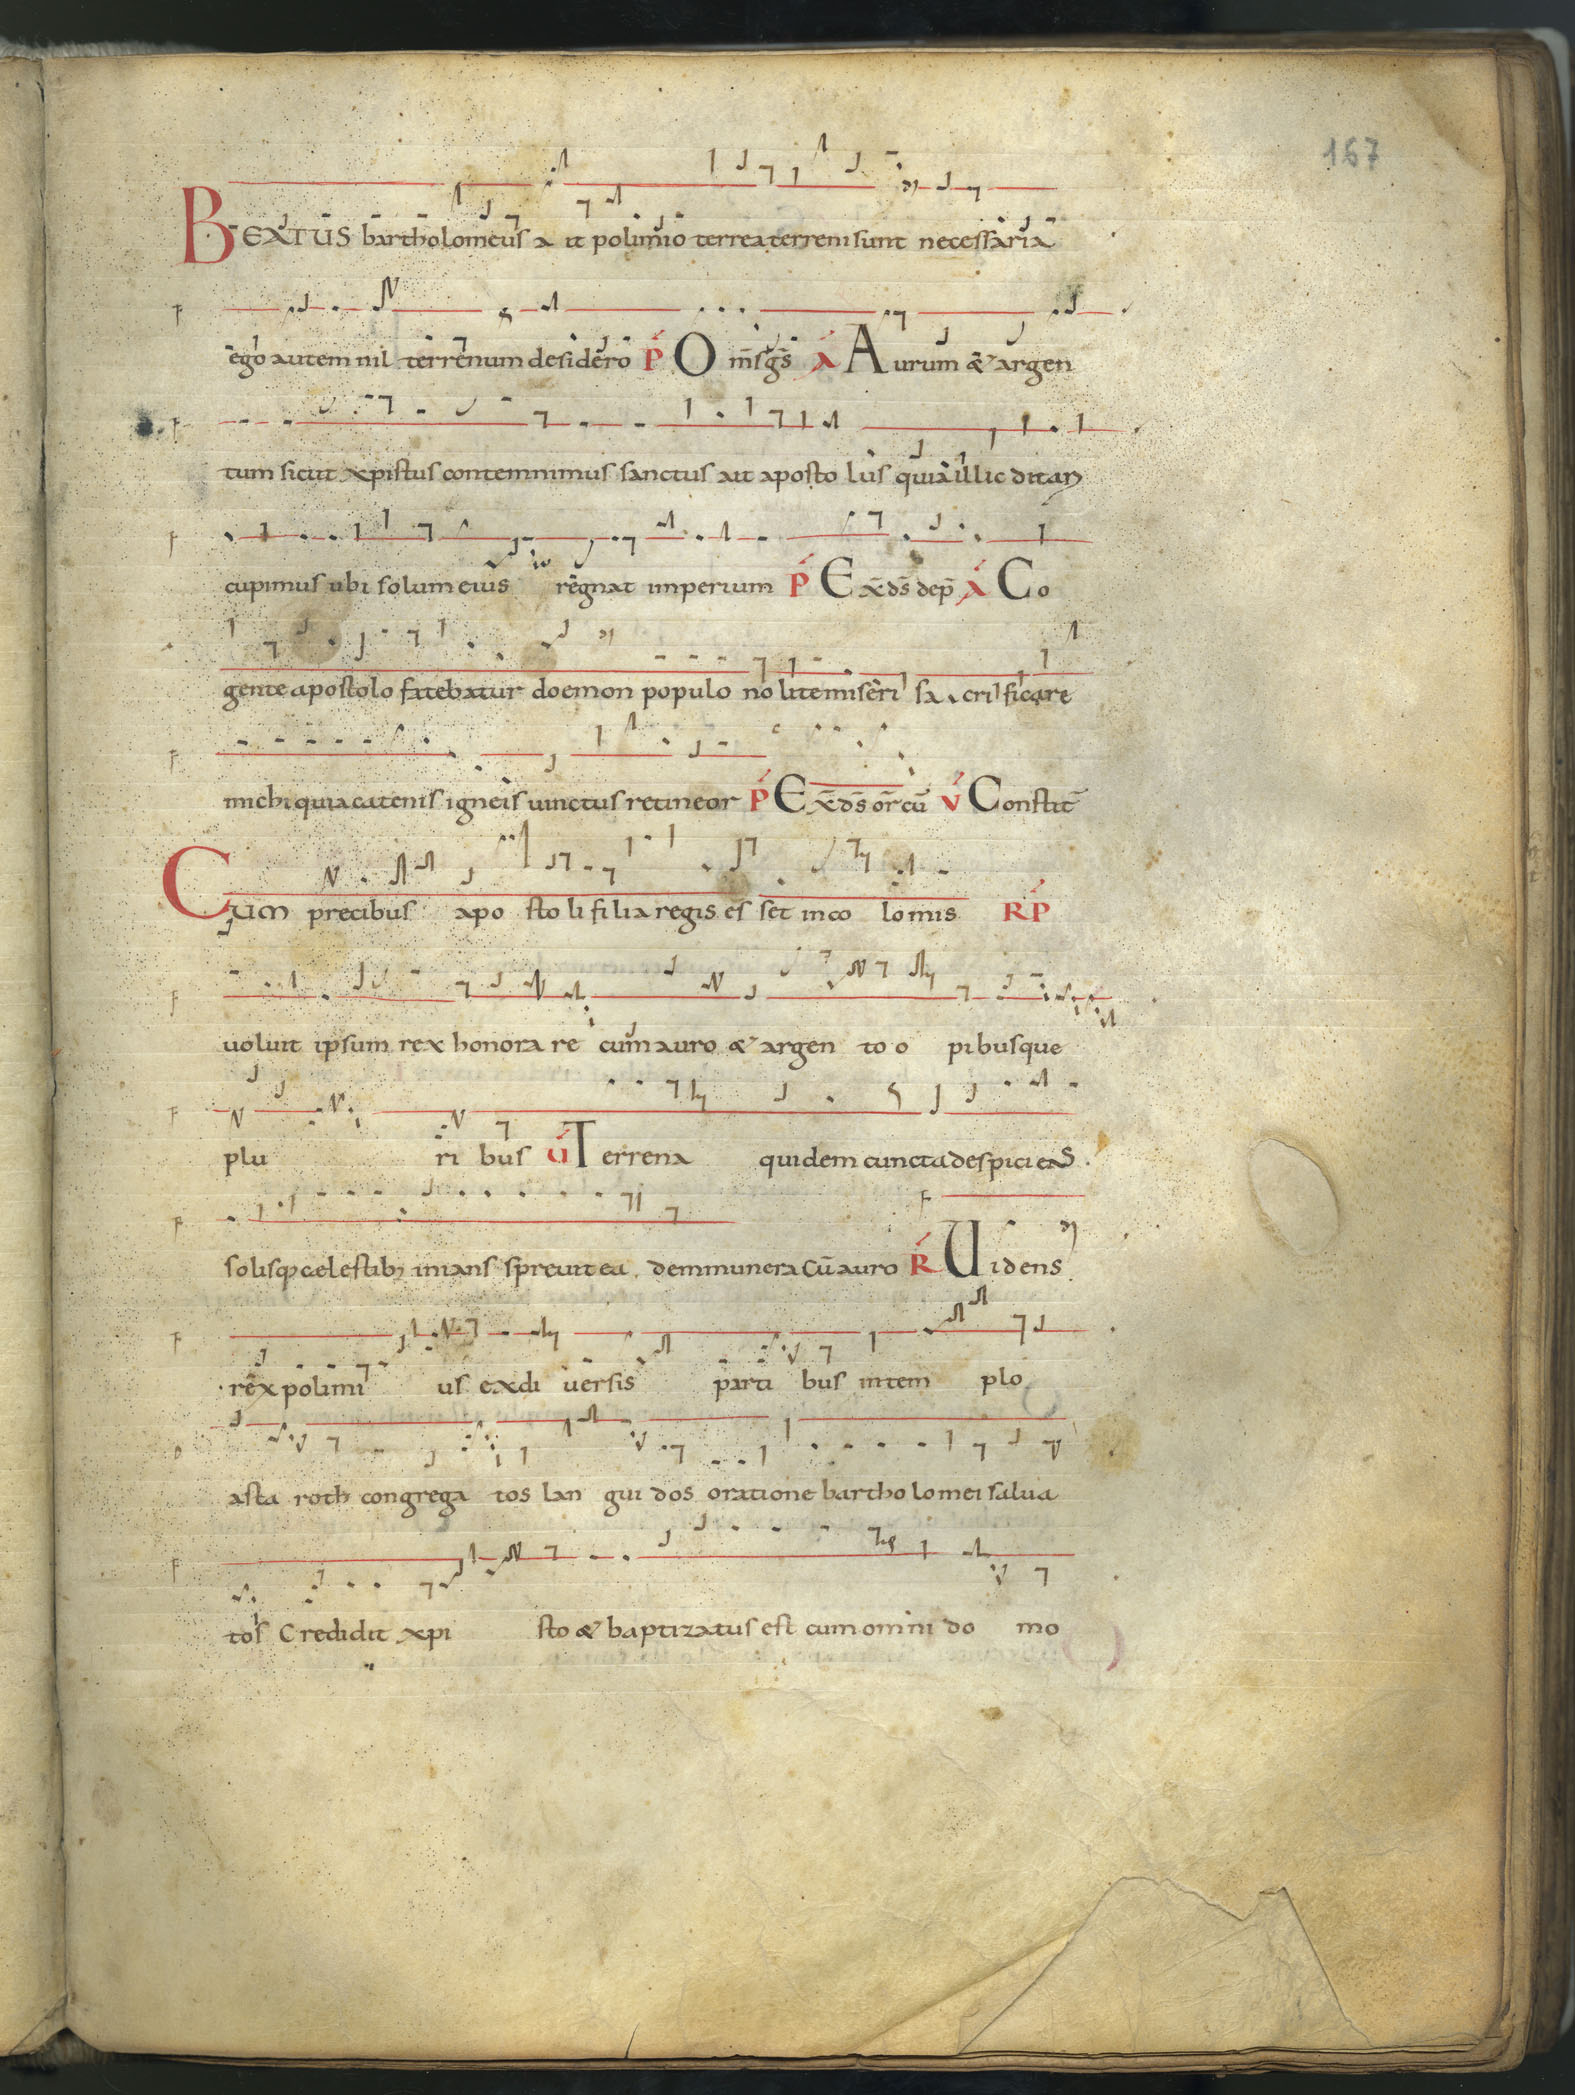 167
BEATUS bartholomeus a it polimio terrea terreni sunt necessaria
ego autem nil terrenum desidero P Om̄s gs̄ A Aurum & argen
tum sicut xpistus contemnimus sanctus ait aposto lus quia illic ditari
cupimus ubi solum eius regnat imperium P Exd̄s dep̄ A Co
gente apostolo fatebatur doemon populo no lite miseri sa cri ficare
michi quia catenis igneis uinctus retineor P Ex̄d̄s or̄ cū V Constit̄
Cum precibus apo sto li filia regis es set inco lomis RP
uoluit ipsum rex honora re cum auro & argen to o pibusque
plu ri bus V Terrena quidem cuncta despiciens.
solisq; celestib; inians spreuit ea demmunera Cū auro R Uidens
rex polimi us exdi uersis parti bus intem plo
asta roth congrega tos lan gui dos oratione bartho lomei salua
tos Credidit xpi sto & baptizatus est cum omni do mo